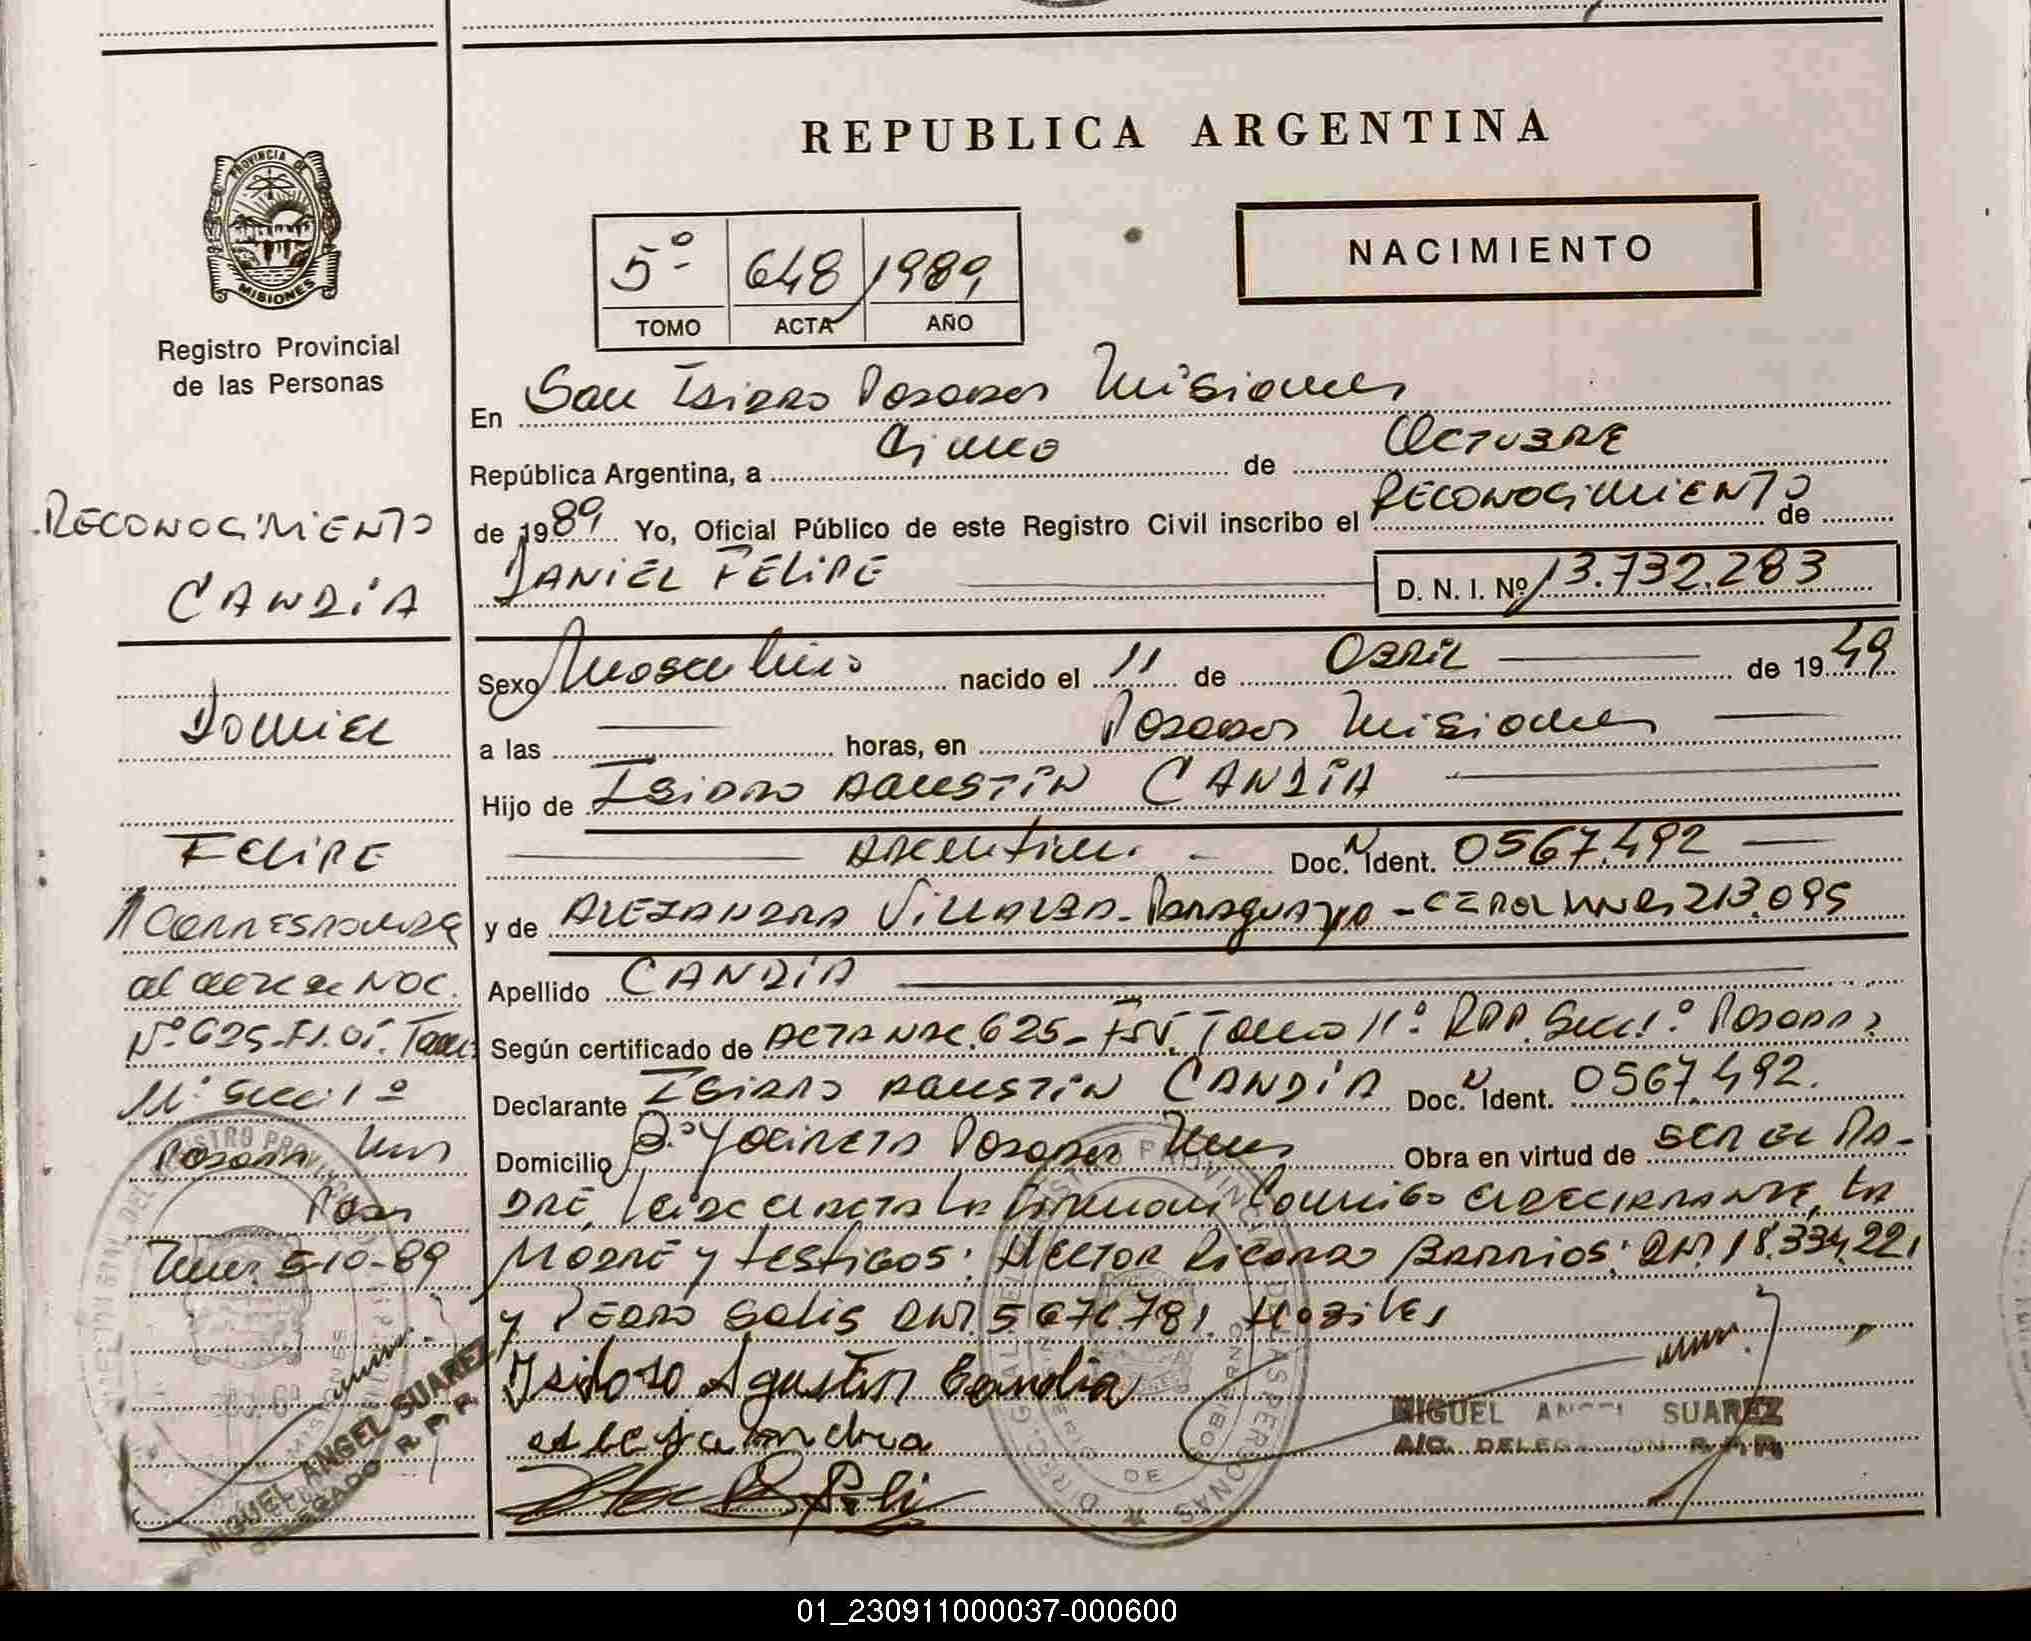 REPUBLICA ARGENTINA
PROVINCIA DE
MISIONES
Registro Provincial
de las Personas
NACIMIENTO
5º 648 1989
TOMO ACTA AÑO
En San Isidro Posadas Misiones
República Argentina, a Cinco de Octubre
de 1989 Yo, Oficial Público de este Registro Civil inscribo el Reconocimiento de
DANIEL FELIPE D. N. I. Nº 13.732.283
Sexo Masculino nacido el 11 de Abril de 1949
a las horas, en Posadas Misiones
Hijo de Isidro Agustín CANDÍA
Argentino. Doc. Ident. 0567.492
y de Alejandra Villalba - Paraguaya - Ced. Pol. Mnes 213.095
Apellido CANDÍA
Según certificado de Acta Nac. 625 - Tomo 11º RPP. Secc. 1º Posadas
Declarante Isidro Agustín CANDÍA Doc. Ident. 0567.492.
Domicilio Bº Yacireta Posadas Mnes Obra en virtud de ser el pa-
dre, Leida el acta la firman conmigo el declarante, la
madre y testigos: Hector Ricardo Barrios: DNI. 18.334.221
y Pedro Solis DNI. 5.676.781 Habiles
Isidoro Agustin Candia
alejandra
MIGUEL ANGEL SUAREZ
A/C. DELEGACION R.P.P.
RECONOCIMIENTO
CANDÍA
Daniel
Felipe
Corresponde
al acta de Nac.
Nº 625 Tomo
11º Secc. 1º
Posadas Mnes
Pdas
Mnes. 5-10-89
MIGUEL ANGEL SUAREZ
DELEGADO R. P. P.
01_230911000037-000600